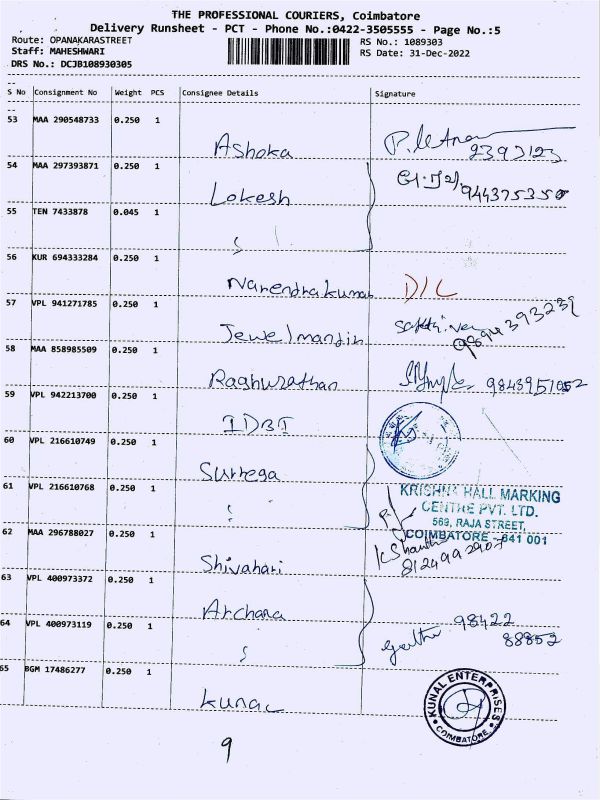 THE PROFESSIONAL COURIERS, Coimbatore
Delivery Runsheet - PCT - Phone No.:0422-3505555 - Page No.:5
Route: OPANAKARASTREET
RS No.: 1089303
Staff: MAHESHWARI
RS Date: 31-Dec-2022
DRS No.: DCJB108930305
S No Consignment No Weight PCS Consignee Details Signature
53 MAA 290548733 0.250 1
Ashoka
2393123
54 MAA 297393871 0.250 1
Lokesh
9443753500
55 TEN 7433878 0.045 1
56 KUR 694333284 0.250 1
Narendrakumar D/C
57 VPL 941271785 0.250 1
Jewelmandir
9894393239
58 MAA 858985509 0.250 1
Raghurathan 9843951052
59 VPL 942213700 0.250 1
IDBI
60 VPL 216610749 0.250 1
Surrega
61 VPL 216610768 0.250 1
KRISHNA HALL MARKING
CENTRE PVT. LTD.
569, RAJA STREET,
COIMBATORE - 641 001
62 MAA 296788027 0.250 1
Shivahari
8124992907
63 VPL 400973372 0.250 1
Archana
64 VPL 400973119 0.250 1
98422
88852
65 BGM 17486277 0.250 1
Kunal
KUNAL ENTERPRISES
COIMBATORE
9